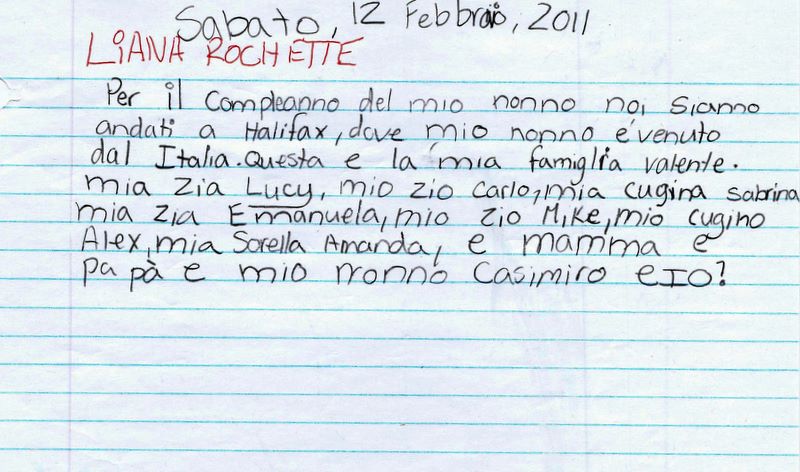 Sabato, 12 Febbraio, 2011
LIANA ROCHETTE
Per il compleanno del mio nonno noi sianno
andati a Halifax, dove mio nonno é venuto
dal Italia. Questa e la mia famiglia valente.
mia zia Lucy, mio zio carlo, mia cugina sabrina
mia zia Emanuela, mio zio Mike, mio cugino
Alex, mia Sorella Amanda, e mamma e
papà e mio nonno Casimiro e IO?